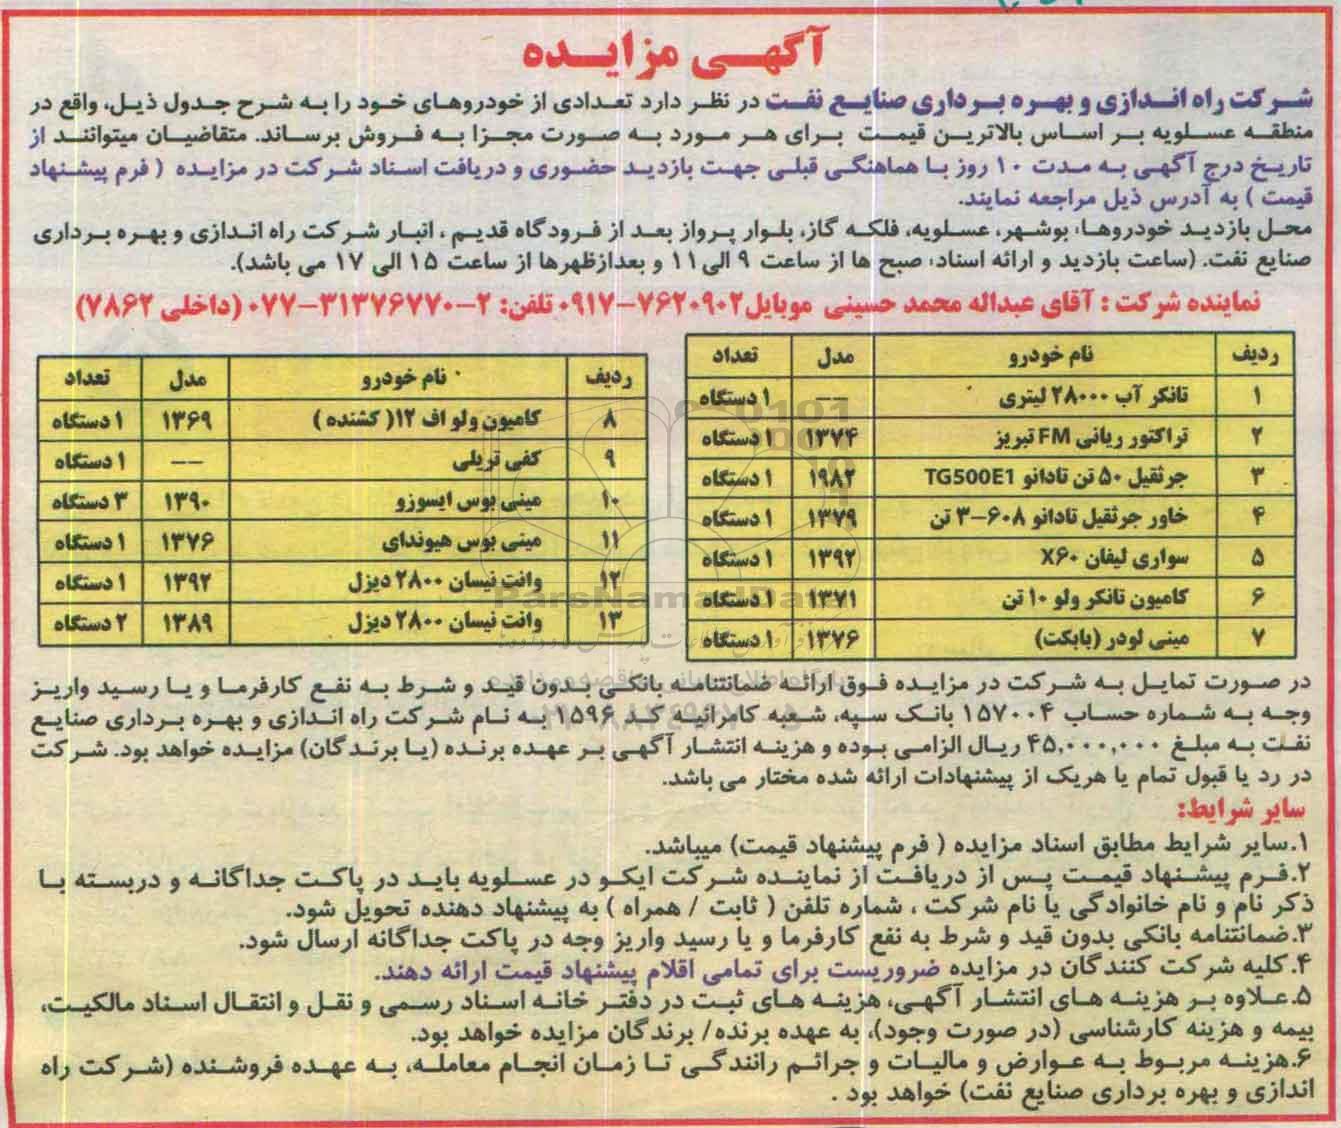 آگهی مزایده
شرکت راه اندازی و بهره برداری صنایع نفت در نظر دارد تعدادی از خودروهای خود را به شرح جدول ذیل، واقع در
منطقه عسلویه بر اساس بالاترین قیمت برای هر مورد به صورت مجزا به فروش برساند. متقاضیان میتوانند از
تاریخ درج آگهی به مدت ۱۰ روز با هماهنگی قبلی جهت بازدید حضوری و دریافت اسناد شرکت در مزایده ( فرم پیشنهاد
قیمت ) به آدرس ذیل مراجعه نمایند.
محل بازدید خودروها: بوشهر، عسلویه، فلکه گاز، بلوار پرواز بعد از فرودگاه قدیم ، انبار شرکت راه اندازی و بهره برداری
صنایع نفت. (ساعت بازدید و ارائه اسناد: صبح ها از ساعت ۹ الی ۱۱ و بعدازظهرها از ساعت ۱۵ الی ۱۷ می باشد).
نماینده شرکت : آقای عبداله محمد حسینی موبایل ۷۶۲۰۹۰۲-۰۹۱۷ تلفن: ۲-۳۱۳۷۶۷۷۰-۰۷۷ (داخلی ۷۸۶۲)
ردیف نام خودرو مدل تعداد
۱ تانکر آب ۲۸۰۰۰ لیتری -- ۱ دستگاه
۲ تراکتور ریانی FM تبریز ۱۳۷۴ ۱ دستگاه
۳ جرثقیل ۵۰ تن تادانو TG500E1 ۱۹۸۲ ۱ دستگاه
۴ خاور جرثقیل تادانو ۶۰۸-۳ تن ۱۳۷۹ ۱ دستگاه
۵ سواری لیفان X۶۰ ۱۳۹۲ ۱ دستگاه
۶ کامیون تانکر ولو ۱۰ تن ۱۳۷۱ ۱ دستگاه
۷ مینی لودر (بابکت) ۱۳۷۶ ۱ دستگاه
ردیف نام خودرو مدل تعداد
۸ کامیون ولو اف ۱۲( کشنده ) ۱۳۶۹ ۱ دستگاه
۹ کفی تریلی -- ۱ دستگاه
۱۰ مینی بوس ایسوزو ۱۳۹۰ ۳ دستگاه
۱۱ مینی بوس هیوندای ۱۳۷۶ ۱ دستگاه
۱۲ وانت نیسان ۲۸۰۰ دیزل ۱۳۹۲ ۱ دستگاه
۱۳ وانت نیسان ۲۸۰۰ دیزل ۱۳۸۹ ۲ دستگاه
ParsNamadData
در صورت تمایل به شرکت در مزایده فوق ارائه ضمانتنامه بانکی بدون قید و شرط به نفع کارفرما و یا رسید واریز
وجه به شماره حساب ۱۵۷۰۰۴ بانک سپه، شعبه کامرانیه کد ۱۵۹۶ به نام شرکت راه اندازی و بهره برداری صنایع
نفت به مبلغ ۴۵,۰۰۰,۰۰۰ ریال الزامی بوده و هزینه انتشار آگهی بر عهده برنده (یا برندگان) مزایده خواهد بود. شرکت
در رد یا قبول تمام یا هریک از پیشنهادات ارائه شده مختار می باشد.
سایر شرایط:
۱.سایر شرایط مطابق اسناد مزایده ( فرم پیشنهاد قیمت) میباشد.
۲.فرم پیشنهاد قیمت پس از دریافت از نماینده شرکت ایکو در عسلویه باید در پاکت جداگانه و دربسته با
ذکر نام و نام خانوادگی یا نام شرکت ، شماره تلفن ( ثابت / همراه ) به پیشنهاد دهنده تحویل شود.
۳.ضمانتنامه بانکی بدون قید و شرط به نفع کارفرما و یا رسید واریز وجه در پاکت جداگانه ارسال شود.
۴.کلیه شرکت کنندگان در مزایده ضروریست برای تمامی اقلام پیشنهاد قیمت ارائه دهند.
۵.علاوه بر هزینه های انتشار آگهی، هزینه های ثبت در دفتر خانه اسناد رسمی و نقل و انتقال اسناد مالکیت،
بیمه و هزینه کارشناسی (در صورت وجود)، به عهده برنده/ برندگان مزایده خواهد بود.
۶.هزینه مربوط به عوارض و مالیات و جرائم رانندگی تا زمان انجام معامله، به عهده فروشنده (شرکت راه
اندازی و بهره برداری صنایع نفت) خواهد بود .